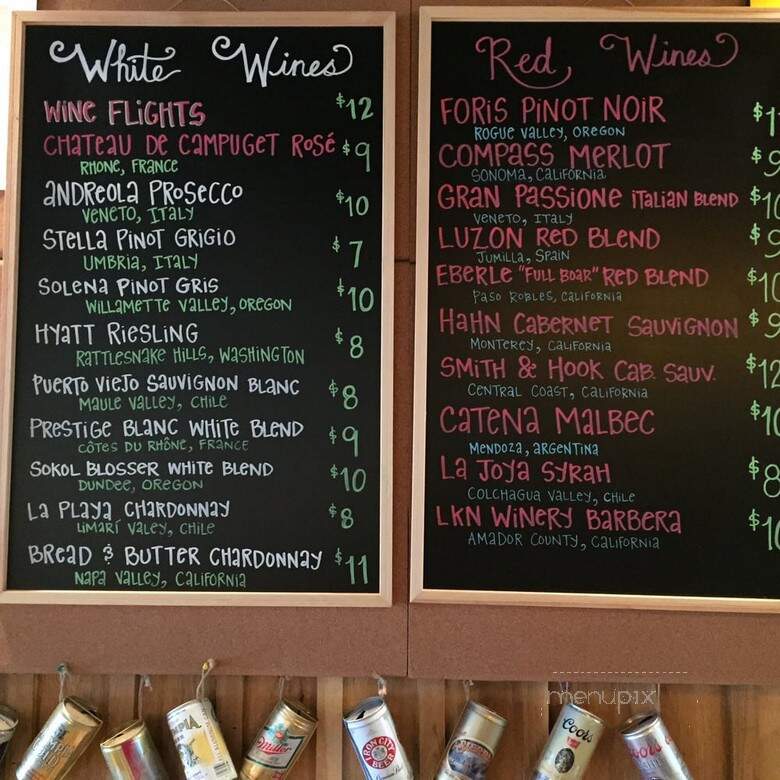 White Wines
WINE FLIGHTS $12
CHATEAU DE CAMPUGET ROSÉ $9
RHONE, FRANCE
ANDREOLA PROSECCO $10
VENETO, ITALY
STELLA PINOT GRIGIO $7
UMBRIA, ITALY
SOLENA PINOT GRIS $10
WILLAMETTE VALLEY, OREGON
HYATT RIESLING $8
RATTLESNAKE HILLS, WASHINGTON
PUERTO VIEJO SAUVIGNON BLANC $8
MAULE VALLEY, CHILE
PRESTIGE BLANC WHITE BLEND $9
CÔTES DU RHÔNE, FRANCE
SOKOL BLOSSER WHITE BLEND $10
DUNDEE, OREGON
LA PLAYA CHARDONNAY $8
LIMARÍ VALEY, CHILE
BREAD & BUTTER CHARDONNAY $11
NAPA VALLEY, CALIFORNIA
Red Wines
FORIS PINOT NOIR $1
ROGUE VALLEY, OREGON
COMPASS MERLOT $9
SONOMA, CALIFORNIA
GRAN PASSIONE ITALIAN BLEND $10
VENETO, ITALY
LUZON RED BLEND $9
JUMILLA, SPAIN
EBERLE "FULL BOAR" RED BLEND $10
PASO ROBLES, CALIFORNIA
HAHN CABERNET SAUVIGNON $9
MONTEREY, CALIFORNIA
SMITH & HOOK CAB. SAUV. $12
CENTRAL COAST, CALIFORNIA
CATENA MALBEC $10
MENDOZA, ARGENTINA
LA JOYA SYRAH $8
COLCHAGUA VALLEY, CHILE
LKN WINERY BARBERA $10
AMADOR COUNTY, CALIFORNIA
menupix
Miller
IRON CITY
BEER
Coors
Coors